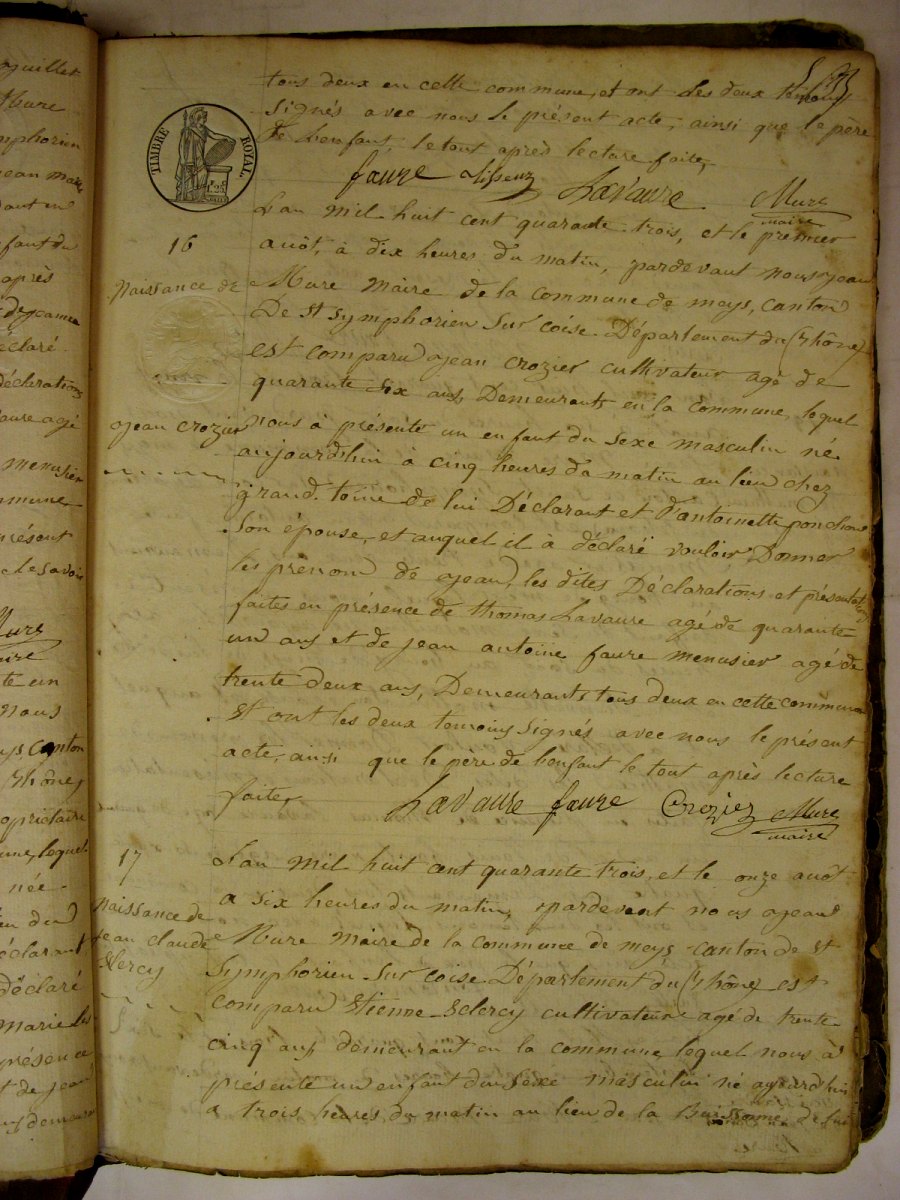 tous deux en cette commune, et ont les deux témoins
signés avec nous le présent acte, ainsi que le père
de Lenfant, le tout après lecture faite,
faure Lavaure Mure
maire
TIMBRE ROYAL
16
Naissance de
jean crozier
L'an mil huit cent quarante trois, et le premier
auôt, à dix heures du matin, pardevant nous jean
Mure Maire de la commune de meys, canton
De St symphorien sur coise. Département du (rhône)
est comparu jean crozier cultivateur agé de
quarante six ans, Demeurant en la commune, lequel
nous à présenté un enfant du sexe masculin né
aujourd'hui à cinq heures du matin au lieu chez
grand. toine de lui Déclarant et d'antoinette ponchon
Son épouse, et auquel il à déclaré vouloir Donner
les prénom de jean, les dites Déclarations et présentation
faites en présence de thomas Lavaure agé de quarante
un ans et de jean antoine faure menusier agé de
trente deux ans, Demeurants tous deux en cette commune
Et ont les deux temoins signés avec nous le présent
acte, ainsi que le père de lenfant le tout après lecture
faite,
Lavaure faure Crozier Mure
maire
17
Naissance de
jean claude
Sclercy
L'an mil huit cent quarante trois, et le onze auôt
a six heures du matin, pardevant nous jean
Mure Maire de la commune de meys canton de St
Symphorien sur coise Département du (rhône) est
comparu Etienne Sclercy cultivateur agé de trente
cinq ans demeurant en la commune, lequel nous à
présenté un enfant du sexe masculin né aujourd'hui
a trois heures du matin au lieu de la de lui